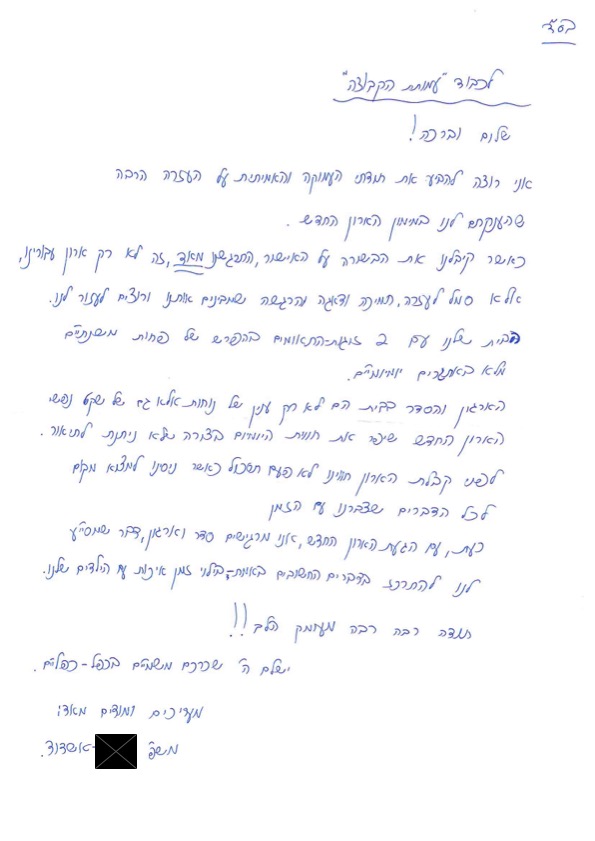 בס"ד
לכבוד "עמותת הקבוצה"
שלום וברכה!
אני רוצה להביע את תודתי העמוקה והאמיתית על העזרה הרבה
שהענקתם לנו במימון הארון החדש.
כאשר קיבלנו את הבשורה על האישור, התרגשנו מאוד, זה לא רק ארון עבורינו,
אלא סמל לעזרה, תמיכה ודאגה והרגשה שמבינים אותנו ורוצים לעזור לנו.
הבית שלנו עם 2 זוגות-התאומים בהפרש של פחות משנתיים
מלא באתגרים יומיומיים.
הארגון והסדר בבית הם לא רק ענין של נוחות אלא גם של שקט נפשי
הארון החדש שיפר את חווית היומיום בצורה שלא ניתנת לתיאור.
לפני קבלת הארון חווינו לא פעם תסכול כאשר ניסנו למצוא מקום
לכל הדברים שצברנו עם הזמן
כעת, עם הגעת הארון החדש, אנו מרגישים סדר וארגון, דבר שמסייע
לנו להתרכז בדברים החשובים באמת-בילוי זמן איכות עם הילדים שלנו.
תודה רבה רבה מעומק הלב!!
ישלם ה' שכרכם משמיים בכפל-כפליים.
מעריכים ומודים מאוד:
משפ' -אשדוד.